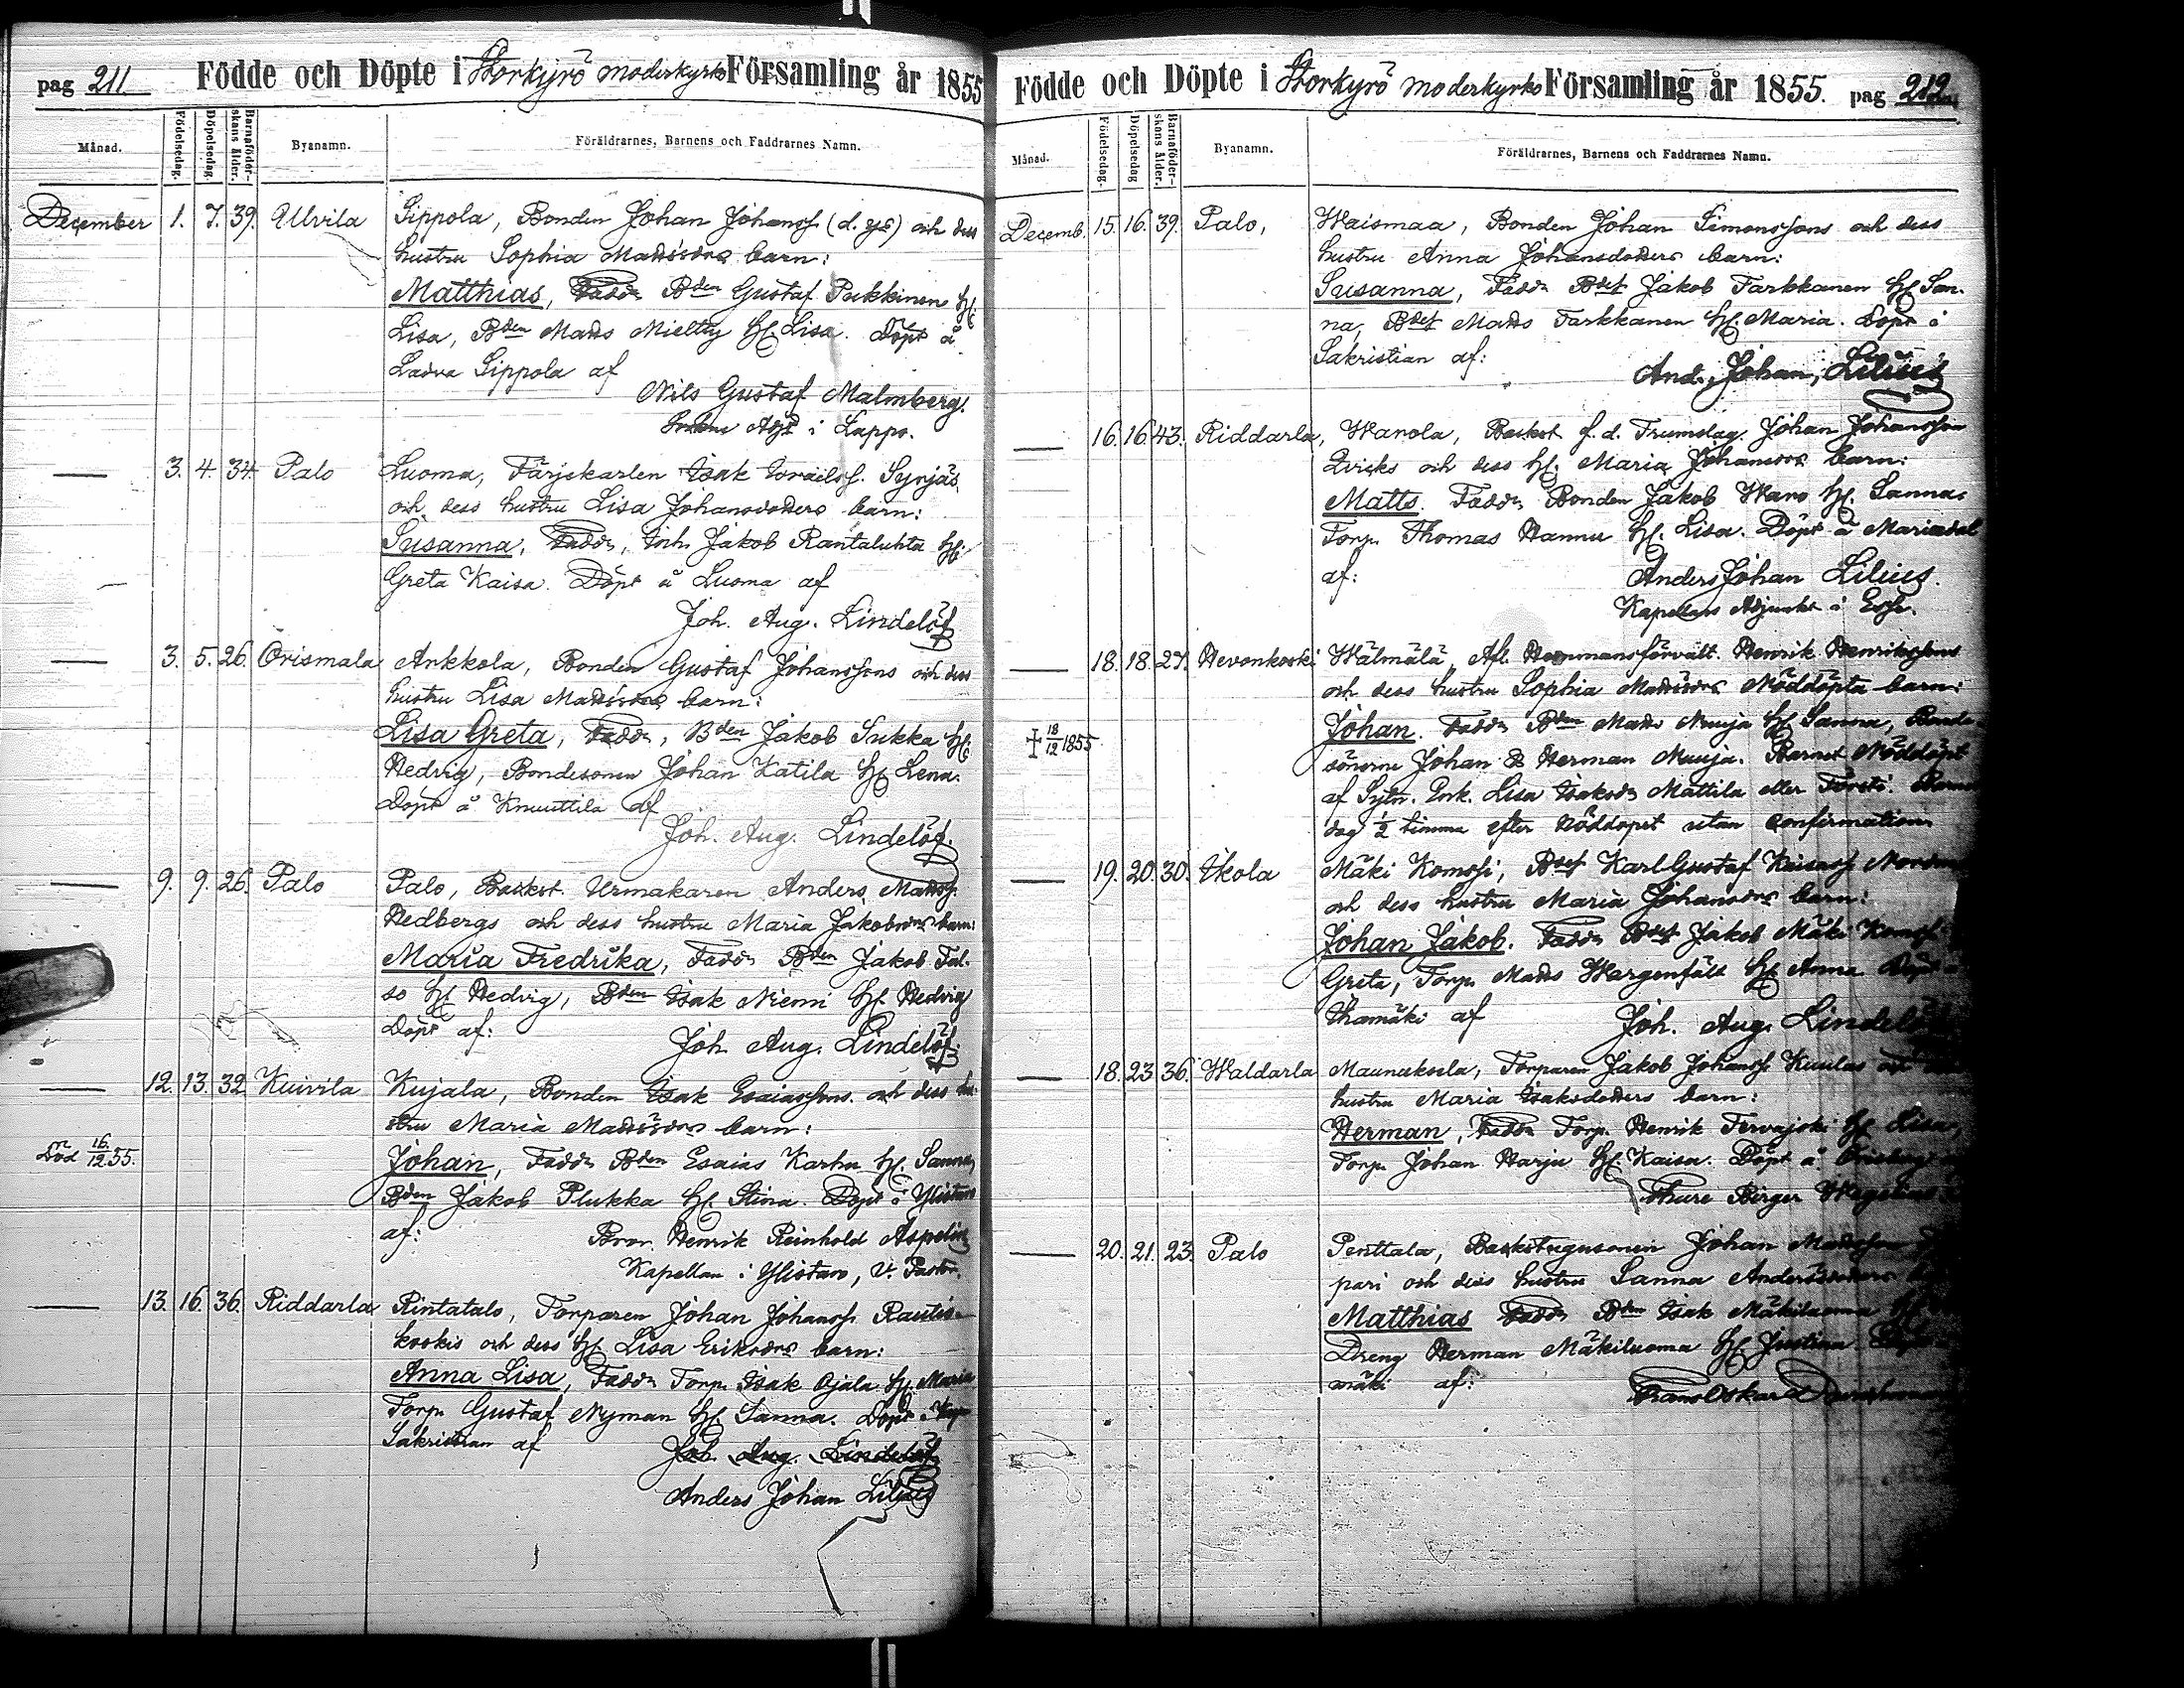 pag 211 Födde och Döpte i Storkyrö moderkyrko Församling år 1855
Månad. Födelsedag. Döpelsedag. Barnaföderskans ålder. Byanamn. Föräldrarnes, Barnens och Faddrarnes Namn.
December 1. 7. 39. Ulvila Sippola, Bonden Johan Johanss. (d. ys) och dess
hustru Sophia Mattsdrs barn:
Matthias, Faddr Bden Gustaf Pukkinen H.
Lisa, Bden Matts Mieltty H. Lisa. Döpt å
Ladva Sippola af
Nils Gustaf Malmberg.
Adjt i Lappo.
— 3. 4. 34. Palo Luoma, Färjekarlen Isak Israelss. Syrjäs
och dess hustru Lisa Johansdotters barn:
Susanna, Faddr, Inh. Jakob Rantaluhta H.
Greta Kaisa. Döpt å Luoma af
Joh. Aug. Lindelöf
— 3. 5. 26. Orismala Ankkola, Bonden Gustaf Johanssons och dess
hustru Lisa Mattsdrs barn:
Lisa Greta, Faddr, Bden Jakob Sukka H.
Hedvig, Bondesonen Johan Katila H. Lena.
Döpt å Knuuttila af
Joh. Aug. Lindelöf.
— 9. 9. 26. Palo Palo, Backst. Urmakaren Anders Mattss.
Hedbergs och dess hustru Maria Jakobsdrs barn:
Maria Fredrika, Faddr Bden Jakob Tal-
so H. Hedvig, Bden Isak Niemi H. Hedvig
Döpt af:
Joh. Aug. Lindelöf.
— 12. 13. 32. Kuivila Kujala, Bonden Isak Esaiassons och dess hu-
stru Maria Mattsdrs barn:
Död 16/12 55. Johan, Faddr Bden Esaias Karhu H. Sanna,
Bden Jakob Plukka H. Stina. Döpt i Ylistaro
af: Henrik Reinhold Aspelin
Kapellan i Ylistaro, V. Pastor.
— 13. 16. 36. Riddarla Rintatalo, Torparen Johan Johanss. Rautio-
koskis och dess H. Lisa Eriksdrs barn:
Anna Lisa, Faddr Torp. Isak Ojala H. Maria
Torp. Gustaf Nyman H. Sanna. Döpt i
Sakristian af
Joh. Aug. Lindelöf
Anders Johan Lilius
Födde och Döpte i Storkyrö moderkyrko Församling år 1855. pag 212
Månad. Födelsedag. Döpelsedag Barnaföderskans ålder. Byanamn. Föräldrarnes, Barnens och Faddrarnes Namn.
Decemb. 15. 16. 39. Palo, Waismaa, Bonden Johan Simonssons och dess
hustru Anna Johansdotters barn:
Susanna, Faddr Jakob Tarkkanen H. San-
na, Matts Tarkkanen H. Maria. Döpt i
Sakristian af:
And. Johan Lilius
— 16. 16. 43. Riddarla, Warola, Backst. f.d. Trumslag. Johan Johansson
Qvicks och dess H. Maria Johansdrs barn:
Matts. Faddr Bonden Jakob Waro H. Sanna.
Torp. Thomas Hannu H. Lisa. Döpt å Mariedal
af: Anders Johan Lilius.
Kapellans Adjunkt i
— 18. 18. 27. Hevonkoski Wälmälä, Afl. Hemmansförvalt. Henrik Henrikssons
och dess hustru Sophia Mattsdrs Nöddöpta barn:
† 18/12 1855 Johan. Faddr Bden Matts Nuuja H. Sanna, Bonde-
sönerne Johan & Herman Nuuja. Barnet Nöddöpt
af Sytn. Enk. Lisa Isaksdr Mattila eller Barnet
dog 1/2 timma efter Nöddopet utan Confirmation
— 19. 20. 30. Ikola Mäki Komsi, Karl Gustaf
och dess hustru Maria Johansdrs barn:
Johan Jakob. Faddr Jakob Mäki Komsi
Greta, Torp. Matts Wargenfält H. Anna Döpt
Ihamäki af Joh. Aug. Lindelöf
— 18. 23 36. Waldarla Maunuksela, Torparen Jakob Johanss. Kuulas och
hustru Maria Isaksdotters barn:
Herman, Faddr Torp. Henrik Tervajoki H. Lisa,
Torp. Johan Harju H. Kaisa. Döpt å
Thure Birger Wegelius
— 20. 21. 23. Palo Penttala, Backstugusonen Johan
pari och dess hustru Sanna Andersdotters
Matthias Faddr Bden Isak Mäkiluoma H.
Dreng Herman Mäkiluoma H. Justina
mäki af: Frans Oskar